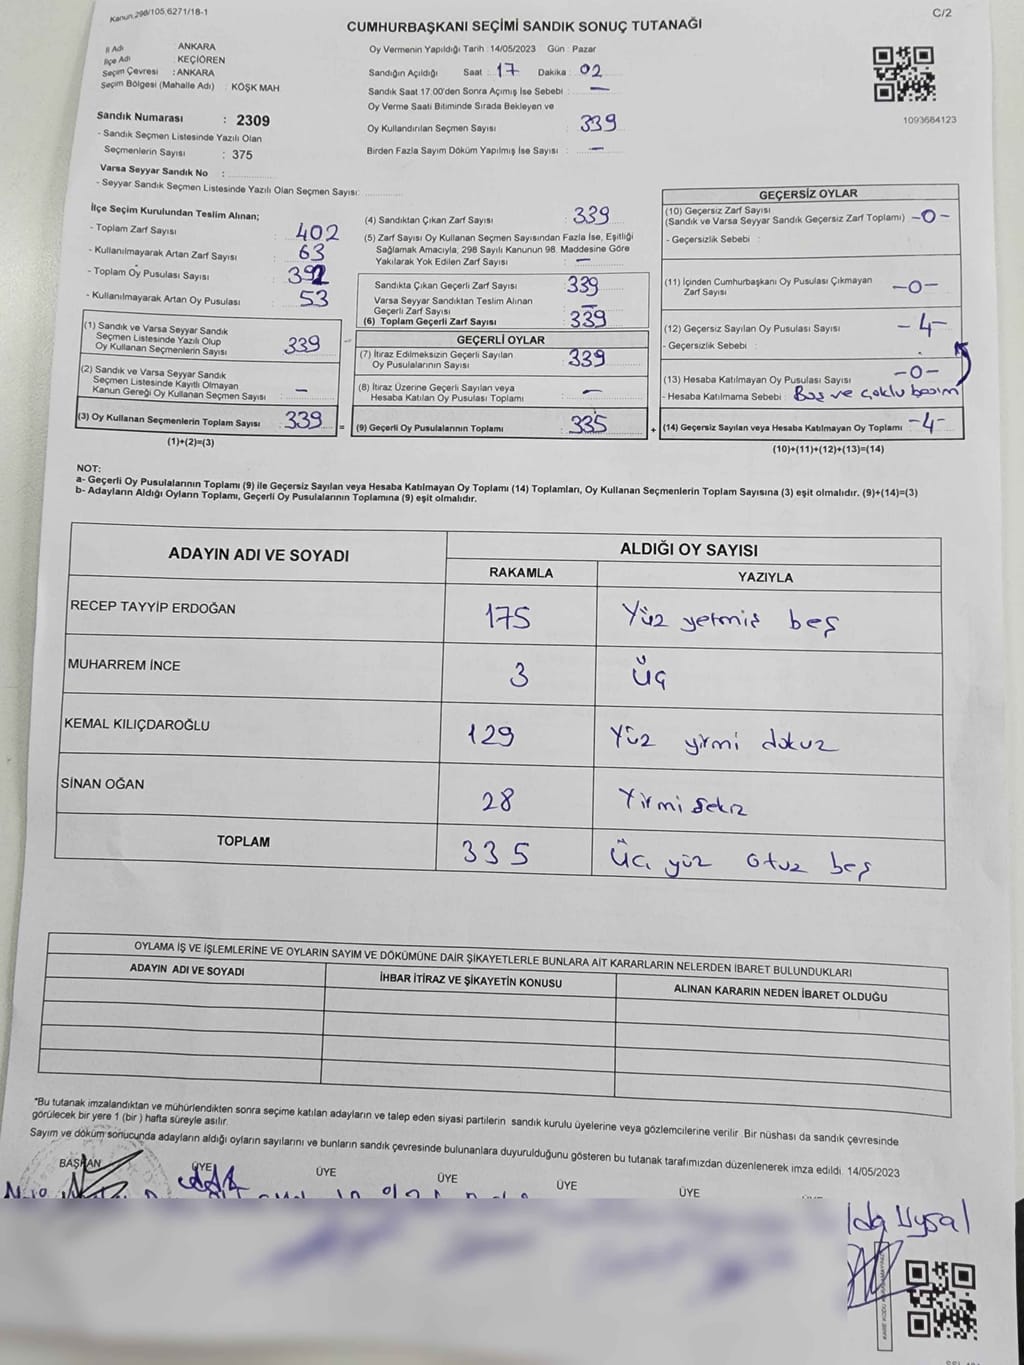 Kanun.298/105,6271/18-1
C/2
CUMHURBAŞKANI SEÇİMİ SANDIK SONUÇ TUTANAĞI
İl Adı ANKARA
İlçe Adı KEÇİÖREN
Seçim Çevresi : ANKARA
Seçim Bölgesi (Mahalle Adı) : KÖŞK MAH
Sandık Numarası : 2309
- Sandık Seçmen Listesinde Yazılı Olan
Seçmenlerin Sayısı : 375
Varsa Seyyar Sandık No :
- Seyyar Sandık Seçmen Listesinde Yazılı Olan Seçmen Sayısı:
Oy Vermenin Yapıldığı Tarih : 14/05/2023 Gün : Pazar
Sandığın Açıldığı Saat : 17 Dakika : 02
Sandık Saat 17.00'den Sonra Açımış İse Sebebi : —
Oy Verme Saati Bitiminde Sırada Bekleyen ve
Oy Kullandırılan Seçmen Sayısı : 339
Birden Fazla Sayım Döküm Yapılmış İse Sayısı : —
1093684123
İlçe Seçim Kurulundan Teslim Alınan;
- Toplam Zarf Sayısı : 402
- Kullanılmayarak Artan Zarf Sayısı : 63
- Toplam Oy Pusulası Sayısı : 392
- Kullanılmayarak Artan Oy Pusulası : 53
(1) Sandık ve Varsa Seyyar Sandık
Seçmen Listesinde Yazılı Olup
Oy Kullanan Seçmenlerin Sayısı : 339
(2) Sandık ve Varsa Seyyar Sandık
Seçmen Listesinde Kayıtlı Olmayan
Kanun Gereği Oy Kullanan Seçmen Sayısı : —
(3) Oy Kullanan Seçmenlerin Toplam Sayısı : 339
(1)+(2)=(3)
(4) Sandıktan Çıkan Zarf Sayısı : 339
(5) Zarf Sayısı Oy Kullanan Seçmen Sayısından Fazla İse, Eşitliği
Sağlamak Amacıyla; 298 Sayılı Kanunun 98. Maddesine Göre
Yakılarak Yok Edilen Zarf Sayısı : —
Sandıkta Çıkan Geçerli Zarf Sayısı : 339
Varsa Seyyar Sandıktan Teslim Alınan
Geçerli Zarf Sayısı : —
(6) Toplam Geçerli Zarf Sayısı : 339
GEÇERLİ OYLAR
(7) İtiraz Edilmeksizin Geçerli Sayılan
Oy Pusulalarının Sayısı : 339
(8) İtiraz Üzerine Geçerli Sayılan veya
Hesaba Katılan Oy Pusulası Toplamı : —
= (9) Geçerli Oy Pusulalarının Toplamı : 335
GEÇERSİZ OYLAR
(10) Geçersiz Zarf Sayısı
(Sandık ve Varsa Seyyar Sandık Geçersiz Zarf Toplamı) : -0-
- Geçersizlik Sebebi :
(11) İçinden Cumhurbaşkanı Oy Pusulası Çıkmayan
Zarf Sayısı : -0-
(12) Geçersiz Sayılan Oy Pusulası Sayısı : -4-
- Geçersizlik Sebebi :
(13) Hesaba Katılmayan Oy Pusulası Sayısı : -0-
- Hesaba Katılmama Sebebi : Boş ve çoklu basım
+ (14) Geçersiz Sayılan veya Hesaba Katılmayan Oy Toplamı : -4-
(10)+(11)+(12)+(13)=(14)
NOT:
a- Geçerli Oy Pusulalarının Toplamı (9) ile Geçersiz Sayılan veya Hesaba Katılmayan Oy Toplamı (14) Toplamları, Oy Kullanan Seçmenlerin Toplam Sayısına (3) eşit olmalıdır. (9)+(14)=(3)
b- Adayların Aldığı Oyların Toplamı, Geçerli Oy Pusulalarının Toplamına (9) eşit olmalıdır.
ADAYIN ADI VE SOYADI ALDIĞI OY SAYISI
RAKAMLA YAZIYLA
RECEP TAYYİP ERDOĞAN 175 Yüz yetmiş beş
MUHARREM İNCE 3 Üç
KEMAL KILIÇDAROĞLU 129 Yüz yirmi dokuz
SİNAN OĞAN 28 Yirmi sekiz
TOPLAM 335 Üç yüz otuz beş
OYLAMA İŞ VE İŞLEMLERİNE VE OYLARIN SAYIM VE DÖKÜMÜNE DAİR ŞİKAYETLERLE BUNLARA AİT KARARLARIN NELERDEN İBARET BULUNDUKLARI
ADAYIN ADI VE SOYADI İHBAR İTİRAZ VE ŞİKAYETİN KONUSU ALINAN KARARIN NEDEN İBARET OLDUĞU
*Bu tutanak imzalandıktan ve mühürlendikten sonra seçime katılan adayların ve talep eden siyasi partilerin sandık kurulu üyelerine veya gözlemcilerine verilir. Bir nüshası da sandık çevresinde
görülecek bir yere 1 (bir ) hafta süreyle asılır.
Sayım ve döküm sonucunda adayların aldığı oyların sayılarını ve bunların sandık çevresinde bulunanlara duyurulduğunu gösteren bu tutanak tarafımızdan düzenlenerek imza edildi. 14/05/2023
BAŞKAN ÜYE ÜYE ÜYE ÜYE ÜYE
Ida Uysal